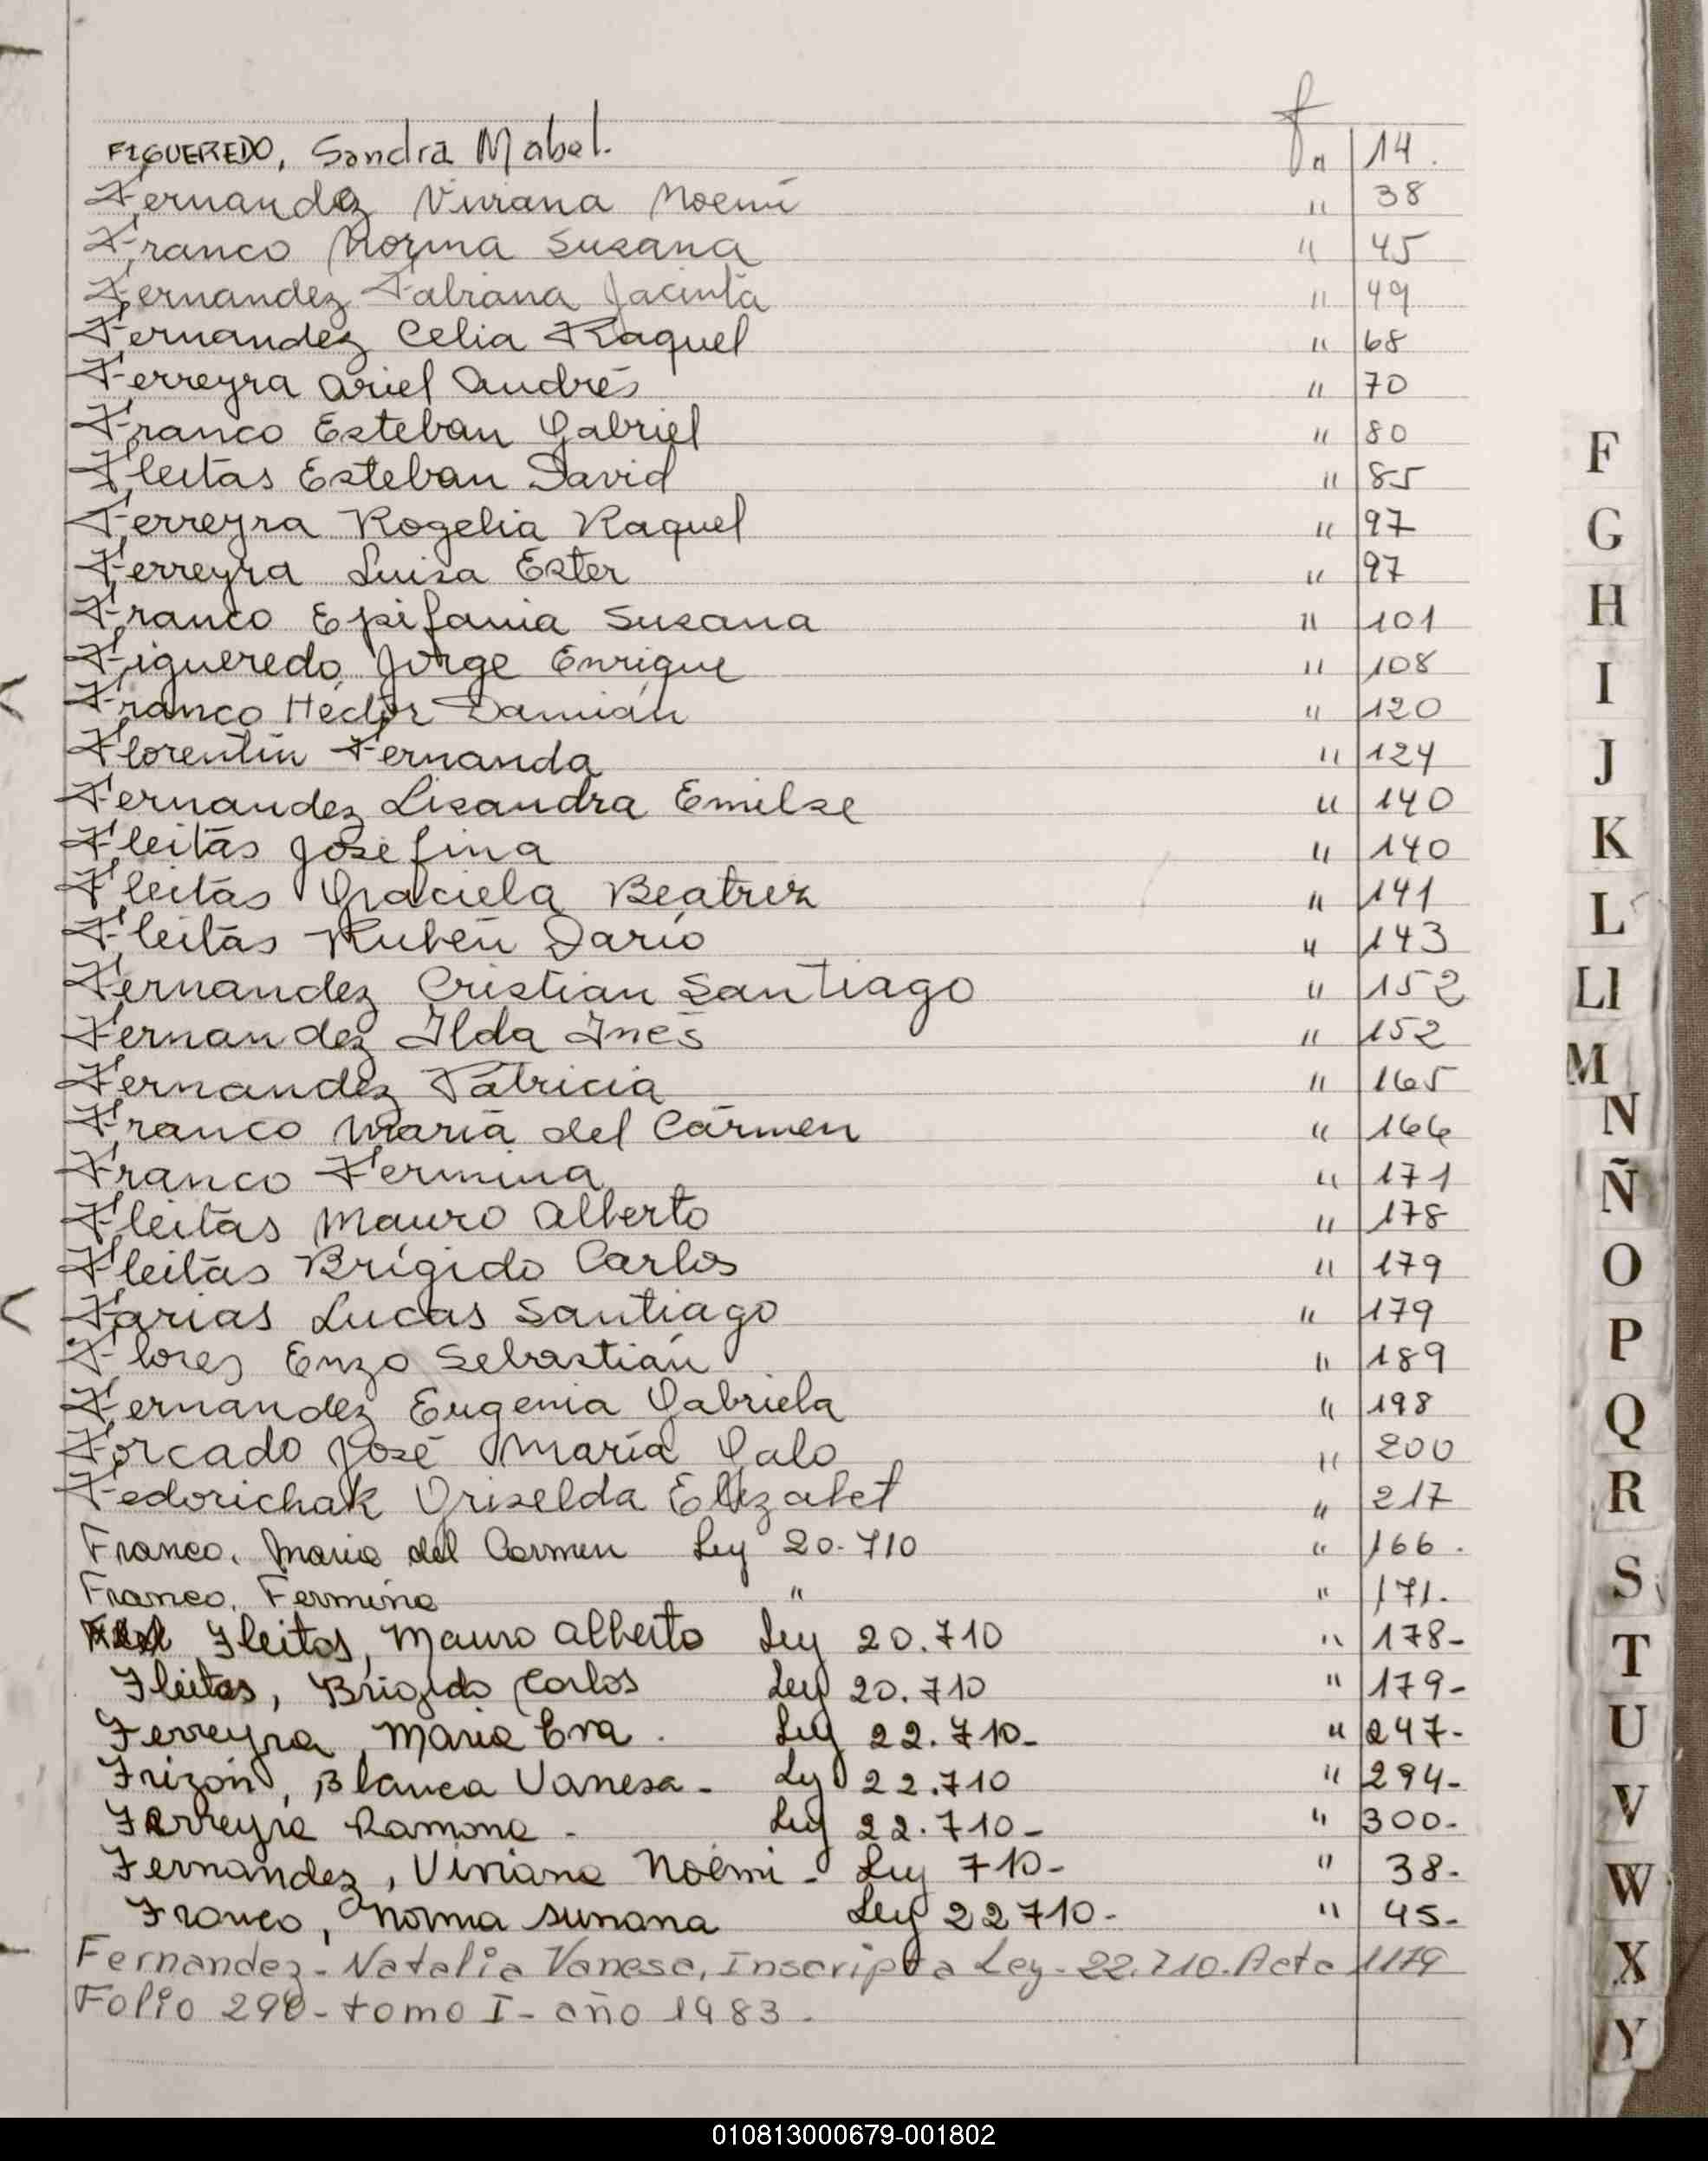 f
FIGUEREDO, Sandra Mabel. " 14.
Fernandez Viviana Noemí " 38
Franco Norma Susana " 45
Fernandez Fabiana Jacinta " 49
Fernandez Celia Raquel " 68
Ferreyra Ariel Andrés " 70
Franco Esteban Gabriel " 80
Fleitas Esteban David " 85
Ferreyra Rogelia Raquel " 97
Ferreyra Luisa Ester " 97
Franco Epifania Susana " 101
Figueredo Jorge Enrique " 108
Franco Héctor Damián " 120
Florentín Fernanda " 124
Fernandez Lisandra Emilse " 140
Fleitas Josefina " 140
Fleitas Graciela Beatrez " 141
Fleitas Rubén Darío " 143
Fernandez Cristian Santiago " 152
Fernandez Ilda Inés " 152
Fernandez Patricia " 165
Franco María del Cármen " 166
Franco Fermina " 171
Fleitas Mauro Alberto " 178
Fleitas Brígido Carlos " 179
Farias Lucas Santiago " 179
Flores Enzo Sebastián " 189
Fernandez Eugenia Gabriela " 198
Forcado José María Galo " 200
Fedorichak Griselda Elizabet " 217
Franco, Maria del Carmen Ley 20.710 " 166.
Franco, Fermina " " 171.
Fleitas, Mauro Alberto Ley 20.710 " 178-
Fleitas, Brigido Carlos Ley 20.710 " 179-
Ferreyra, Maria Eva. Ley 22.710- " 247-
Frizón, Blanca Vanesa- Ley 22.710 " 294-
Ferreyra Ramona- Ley 22.710- " 300-
Fernandez, Viviana Noemi- Ley 710- " 38-
Franco, Norma Susana Ley 22710- " 45-
Fernandez- Natalia Vanesa, Inscripta Ley-22.710. Acta 1179
Folio 290- tomo I- año 1983.
F
G
H
I
J
K
L
Ll
M
N
Ñ
O
P
Q
R
S
T
U
V
W
X
Y
010813000679-001802